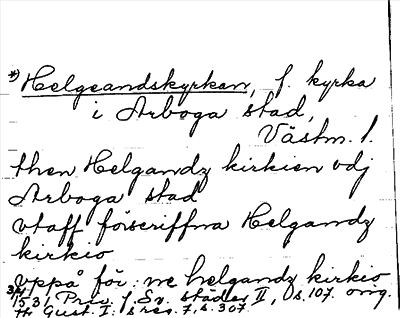 *) Helgeandskyrkan, f. kyrka
i Arboga stad,
Västm. l.
then Helgandz kirkien vdj
Arboga stad
vtaff förscriffna Helgandz
kirkio
vppå för:ne helgandz kirkio
3/4 1531 Priv. f. Sv. städer II, s. 107. orig.
Gust. I:s reg. 7, s. 307.